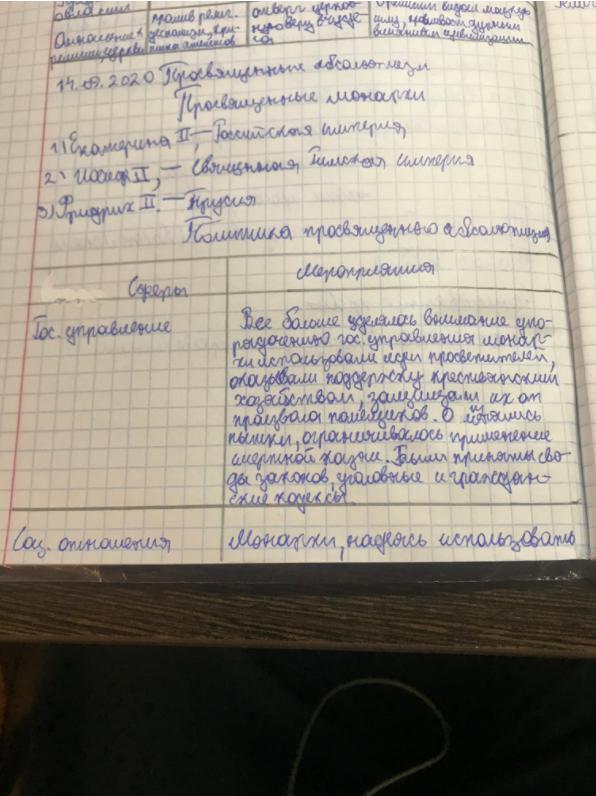 против религ.
отверг церков-
Отношение к
религии, церкви
14.09.2020 Просвященный абсолютизм
Просвященные монархи
1) Екатерина II — Российская империя
2) Иосиф II, — Священная Римская империя
3) Фридрих II. — Прусия
Политика просвященного абсолютизма
Сферы
Мероприятия
Гос. управление
Все больше уделялось внимание упо-
рядочению гос. управления монар-
хи использовали идеи просветителей,
оказывали поддержку крестьянским
хозяйствам, защищали их от
произвола помещиков. О
пытки, ограничивалось применение
смертной казни. Были приняты сво-
ды законов, уголовные и граждан-
ские кодексы.
Соц. отношения
Монархи, надеясь использовать